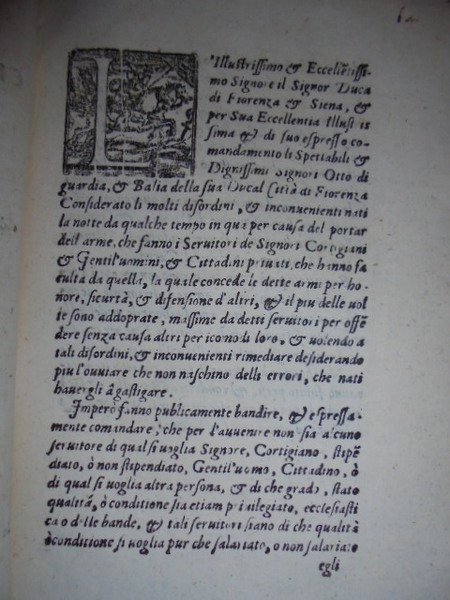 L'Illustrissimo & Eccellẽtissi-
mo Signore il Signor Duca
di Fiorenza & Siena, &
per Sua Eccellentia Illust is
sima & di suo espresso co-
mandamento li Spettabili &
Dignissimi Signori Otto di
guardia, & Balia della sua Ducal Città di Fiorenza
Considerato li molti disordini, & inconuenienti nati
la notte da qualche tempo in qua per causa del portar
dell'arme, che fanno i Seruitori de Signori Cortigiani
& Gentil'uomini, & Cittadini priuati, che hanno fa
culta da quella, la quale concede le dette armi per ho-
nore, sicurtà, & difensione d'altri, & il piu delle uol
te sono addoprate, massime da detti seruitori per offẽ
dere senza causa altri per icomodi loro, & uolendo a
tali disordini, & inconuenienti rimediare desiderando
piu l'ouuiare che non naschino delli errori, che nati
hauergli à gastigare.
Imperò fanno publicamente bandire, & espressa-
mente comandare, che per l'auuenire non sia alcuno
seruitore di qual si uoglia Signore, Cortigiano, stipẽ
diato, ò non stipendiato, Gentil'uomo, Cittadino, ò
di qual si uoglia altra persona, & di che grado, stato
qualità, ò conditione sia etiam priuilegiato, ecclesiasti
co o delle bande, & tali seruitori siano di che qualità
ò conditione si uoglia pur che salariato, o non salariato
egli